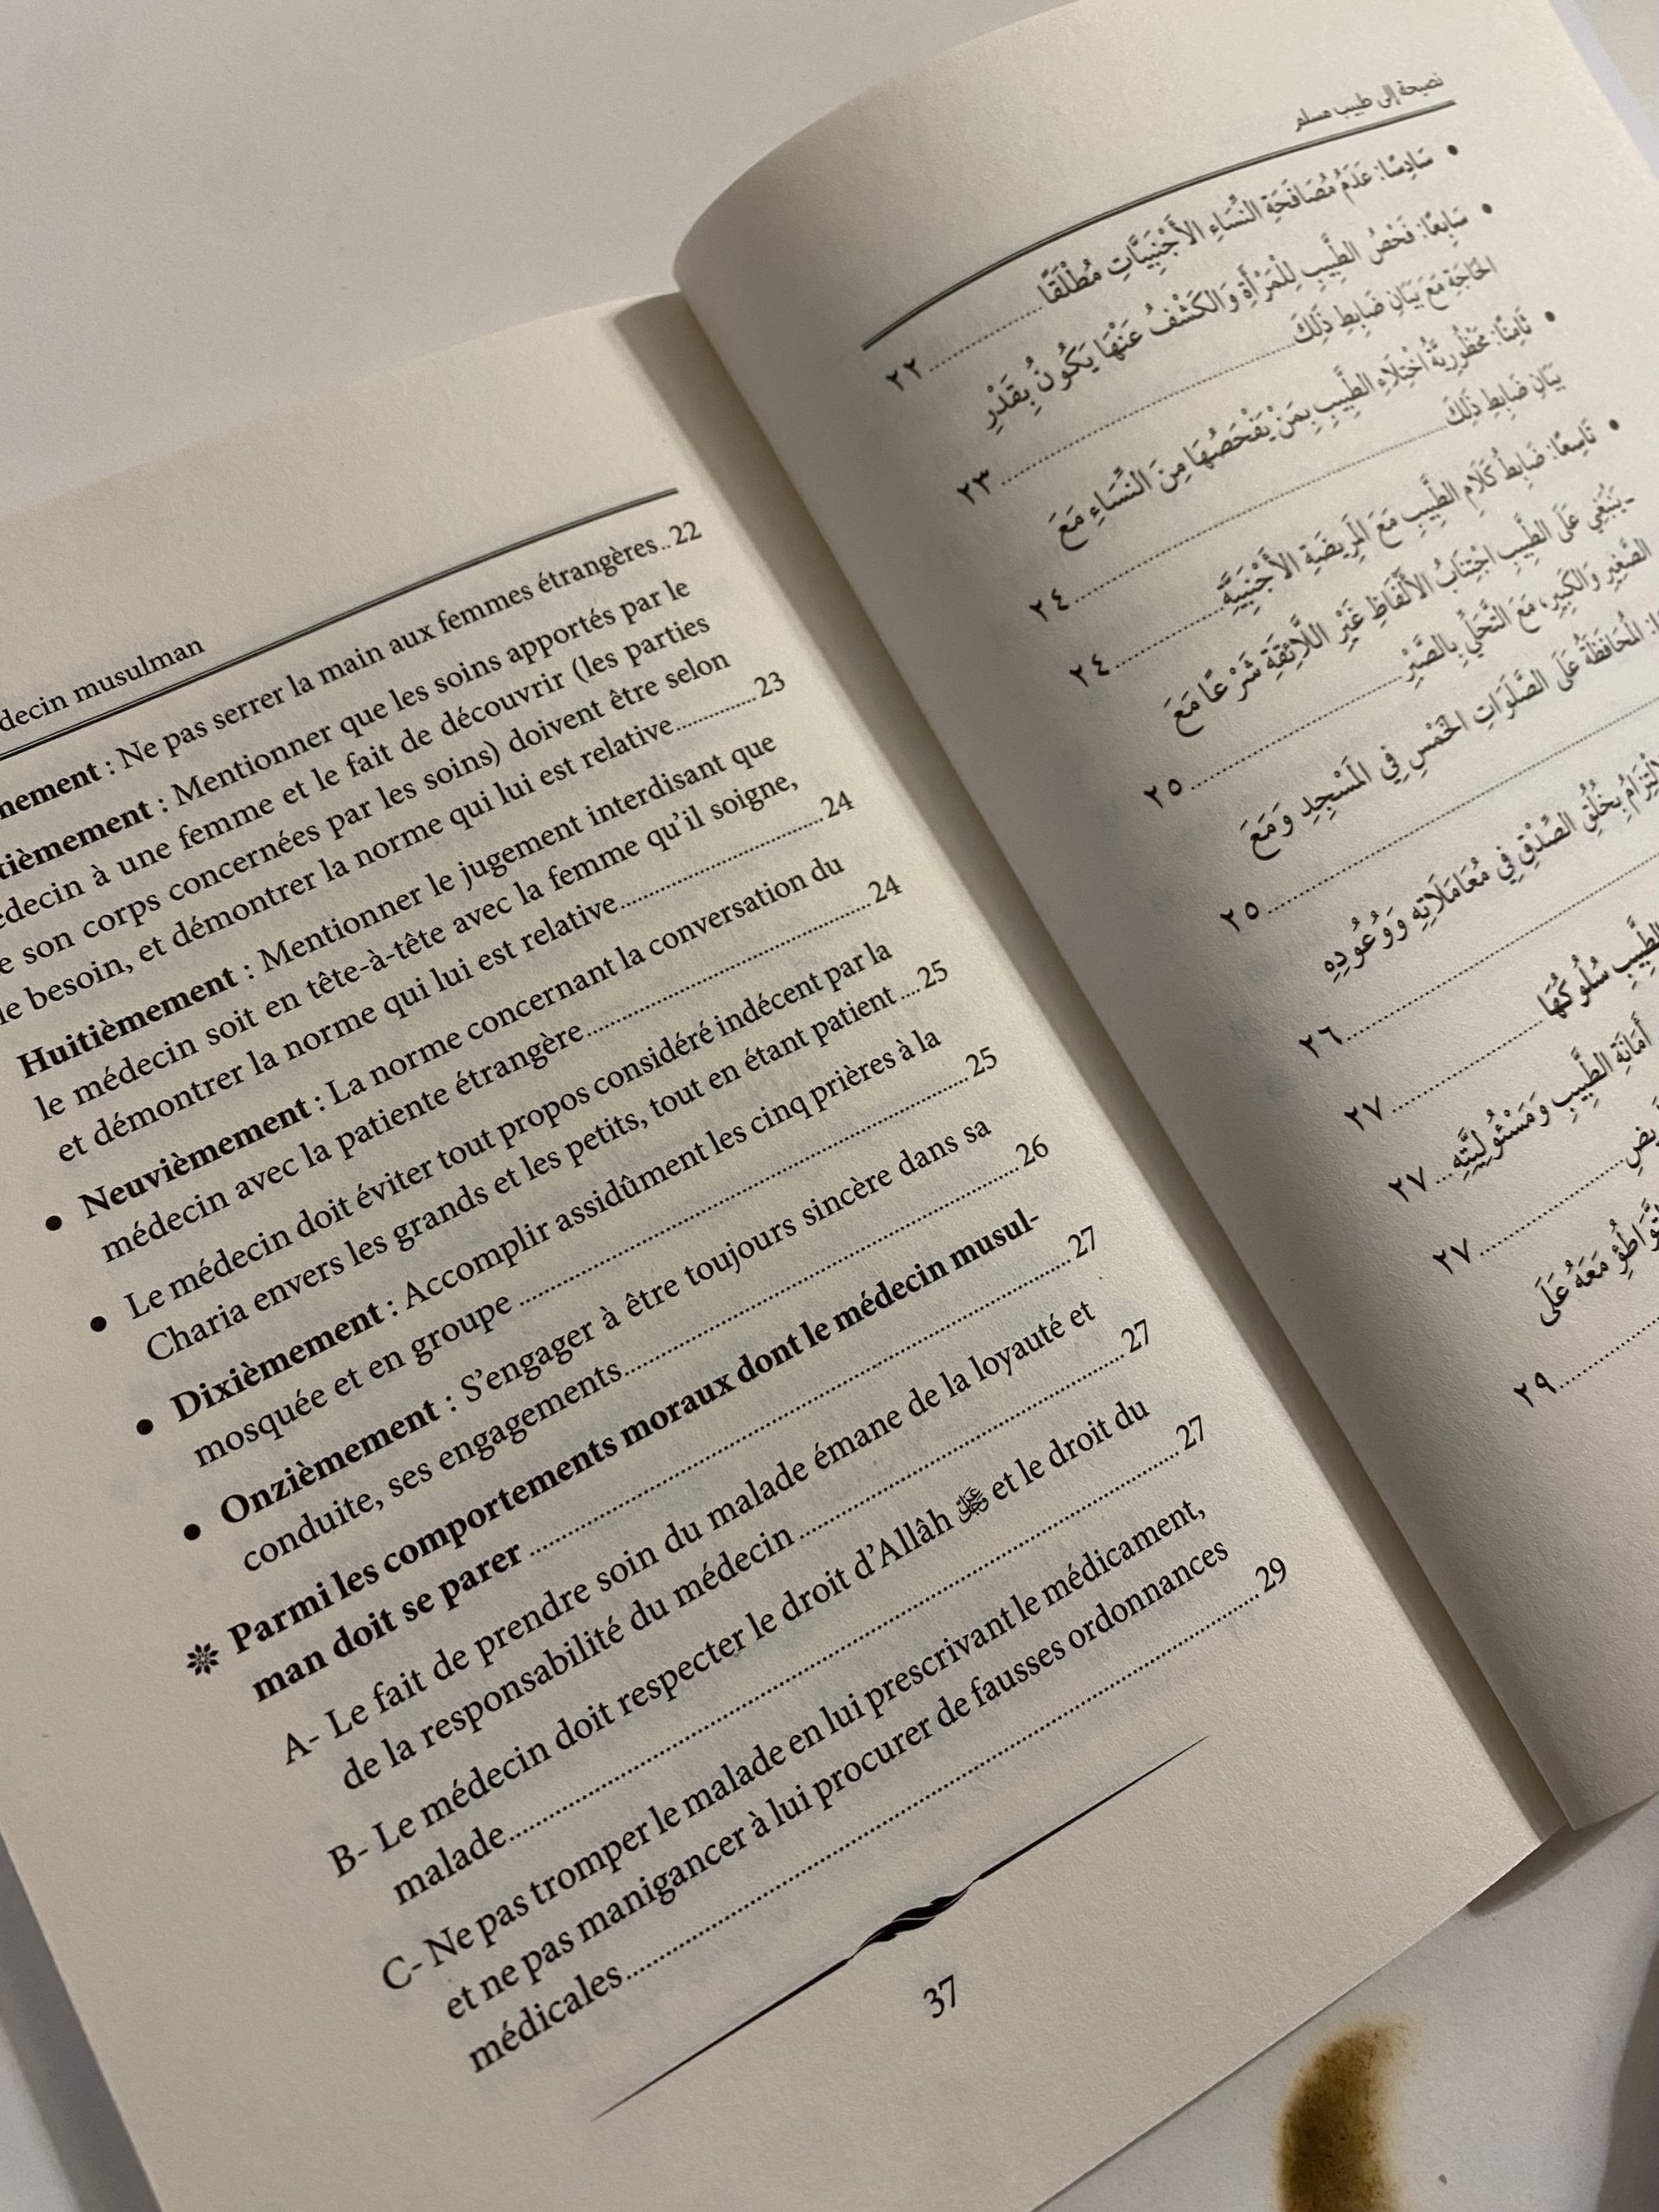 decin musulman
nement : Ne pas serrer la main aux femmes étrangères..22
tièmement : Mentionner que les soins apportés par le
édecin à une femme et le fait de découvrir (les parties
e son corps concernées par les soins) doivent être selon
le besoin, et démontrer la norme qui lui est relative............23
Huitièmement : Mentionner le jugement interdisant que
le médecin soit en tête-à-tête avec la femme qu’il soigne,
et démontrer la norme qui lui est relative..............................24
• Neuvièmement : La norme concernant la conversation du
médecin avec la patiente étrangère..........................................24
• Le médecin doit éviter tout propos considéré indécent par la
Charia envers les grands et les petits, tout en étant patient ...25
• Dixièmement : Accomplir assidûment les cinq prières à la
mosquée et en groupe ..............................................................25
• Onzièmement : S’engager à être toujours sincère dans sa
conduite, ses engagements.......................................................26
❊ Parmi les comportements moraux dont le médecin musul-
man doit se parer ......................................................................27
A- Le fait de prendre soin du malade émane de la loyauté et
de la responsabilité du médecin ............................................27
B- Le médecin doit respecter le droit d’Allâh ﷻ et le droit du
malade.......................................................................................27
C- Ne pas tromper le malade en lui prescrivant le médicament,
et ne pas manigancer à lui procurer de fausses ordonnances
médicales...................................................................................29
37
نصيحة إلى طبيب مسلم
• سَادِسًا: عَدَمُ مُصَافَحَةِ النِّسَاءِ الأَجْنَبِيَّاتِ مُطْلَقًا...............٢٢
• سَابِعًا: فَحْصُ الطَّبِيبِ لِلْمَرْأَةِ وَالكَشْفُ عَنْهَا يَكُونُ بِقَدْرِ
الحَاجَةِ مَعَ بَيَانِ ضَابِطِ ذَلِكَ...............٢٣
• ثَامِنًا: مَحْظُورِيَّةُ اخْتِلَاءِ الطَّبِيبِ بِمَنْ يَفْحَصُهَا مِنَ النِّسَاءِ مَعَ
بَيَانِ ضَابِطِ ذَلِكَ...............٢٤
• تَاسِعًا: ضَابِطُ كَلَامِ الطَّبِيبِ مَعَ المَرِيضَةِ الأَجْنَبِيَّةِ...............٢٤
-يَنْبَغِي عَلَى الطَّبِيبِ اجْتِنَابُ الأَلْفَاظِ غَيْرِ اللَّائِقَةِ شَرْعًا مَعَ
الصَّغِيرِ وَالكَبِيرِ، مَعَ التَّحَلِّي بِالصَّبْرِ...............٢٥
المُحَافَظَةُ عَلَى الصَّلَوَاتِ الخَمْسِ فِي المَسْجِدِ وَمَعَ
...............٢٥
بِخُلُقِ الصِّدْقِ فِي مُعَامَلَاتِهِ وَوُعُودِهِ
...............٢٦
الطَّبِيبِ سُلُوكُهَا...............٢٧
أَمَانَةِ الطَّبِيبِ وَمَسْئُولِيَّتِهِ...٢٧
...............٢٧
مَعَهُ عَلَى
...............٢٩